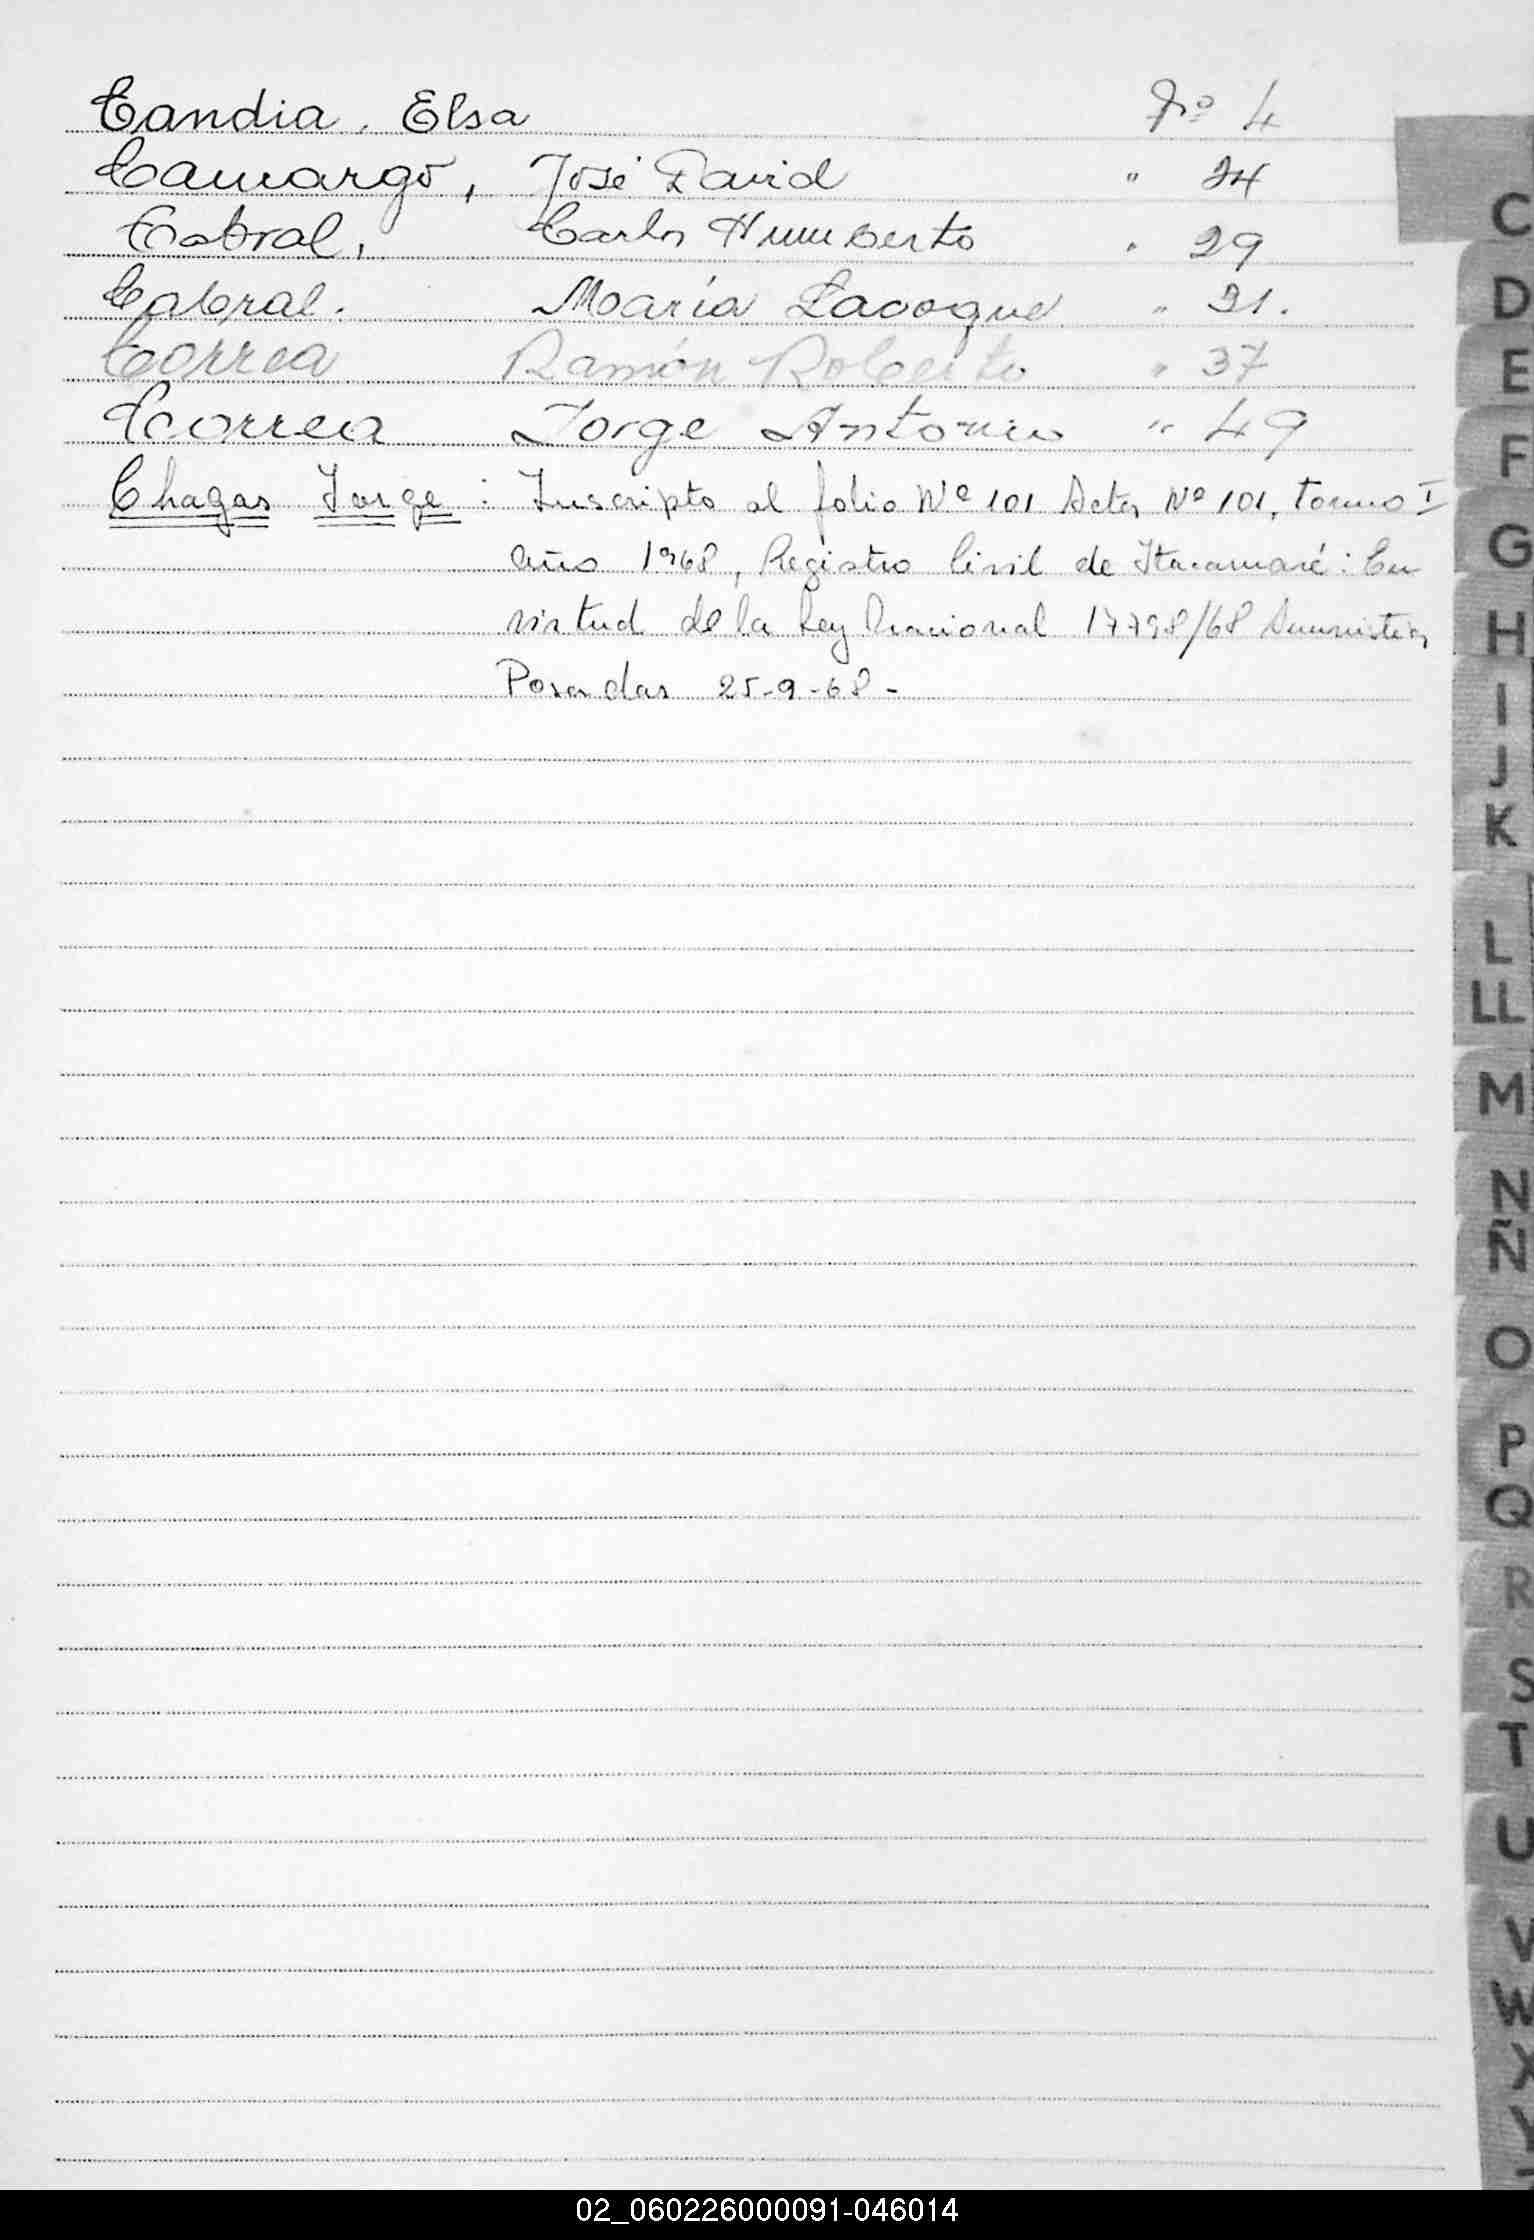 Candia, Elsa Nº 4
Camargo, José David " 24
Cabral, Carlos Humberto " 29
Cabral. María " 31.
Correa Ramón Roberto " 37
Correa Jorge Antonio " 49
Chagas Jorge : Inscripto al folio Nº 101 Acta Nº 101, tomo I
año 1968, Registro Civil de Itacaruaré: En
virtud de la Ley Nacional 17798/68 Amnistía
Posadas 25-9-68-
C
D
E
F
G
H
I
J
K
L
LL
M
N
Ñ
O
P
Q
R
S
T
U
V
W
X
Y
02_060226000091-046014